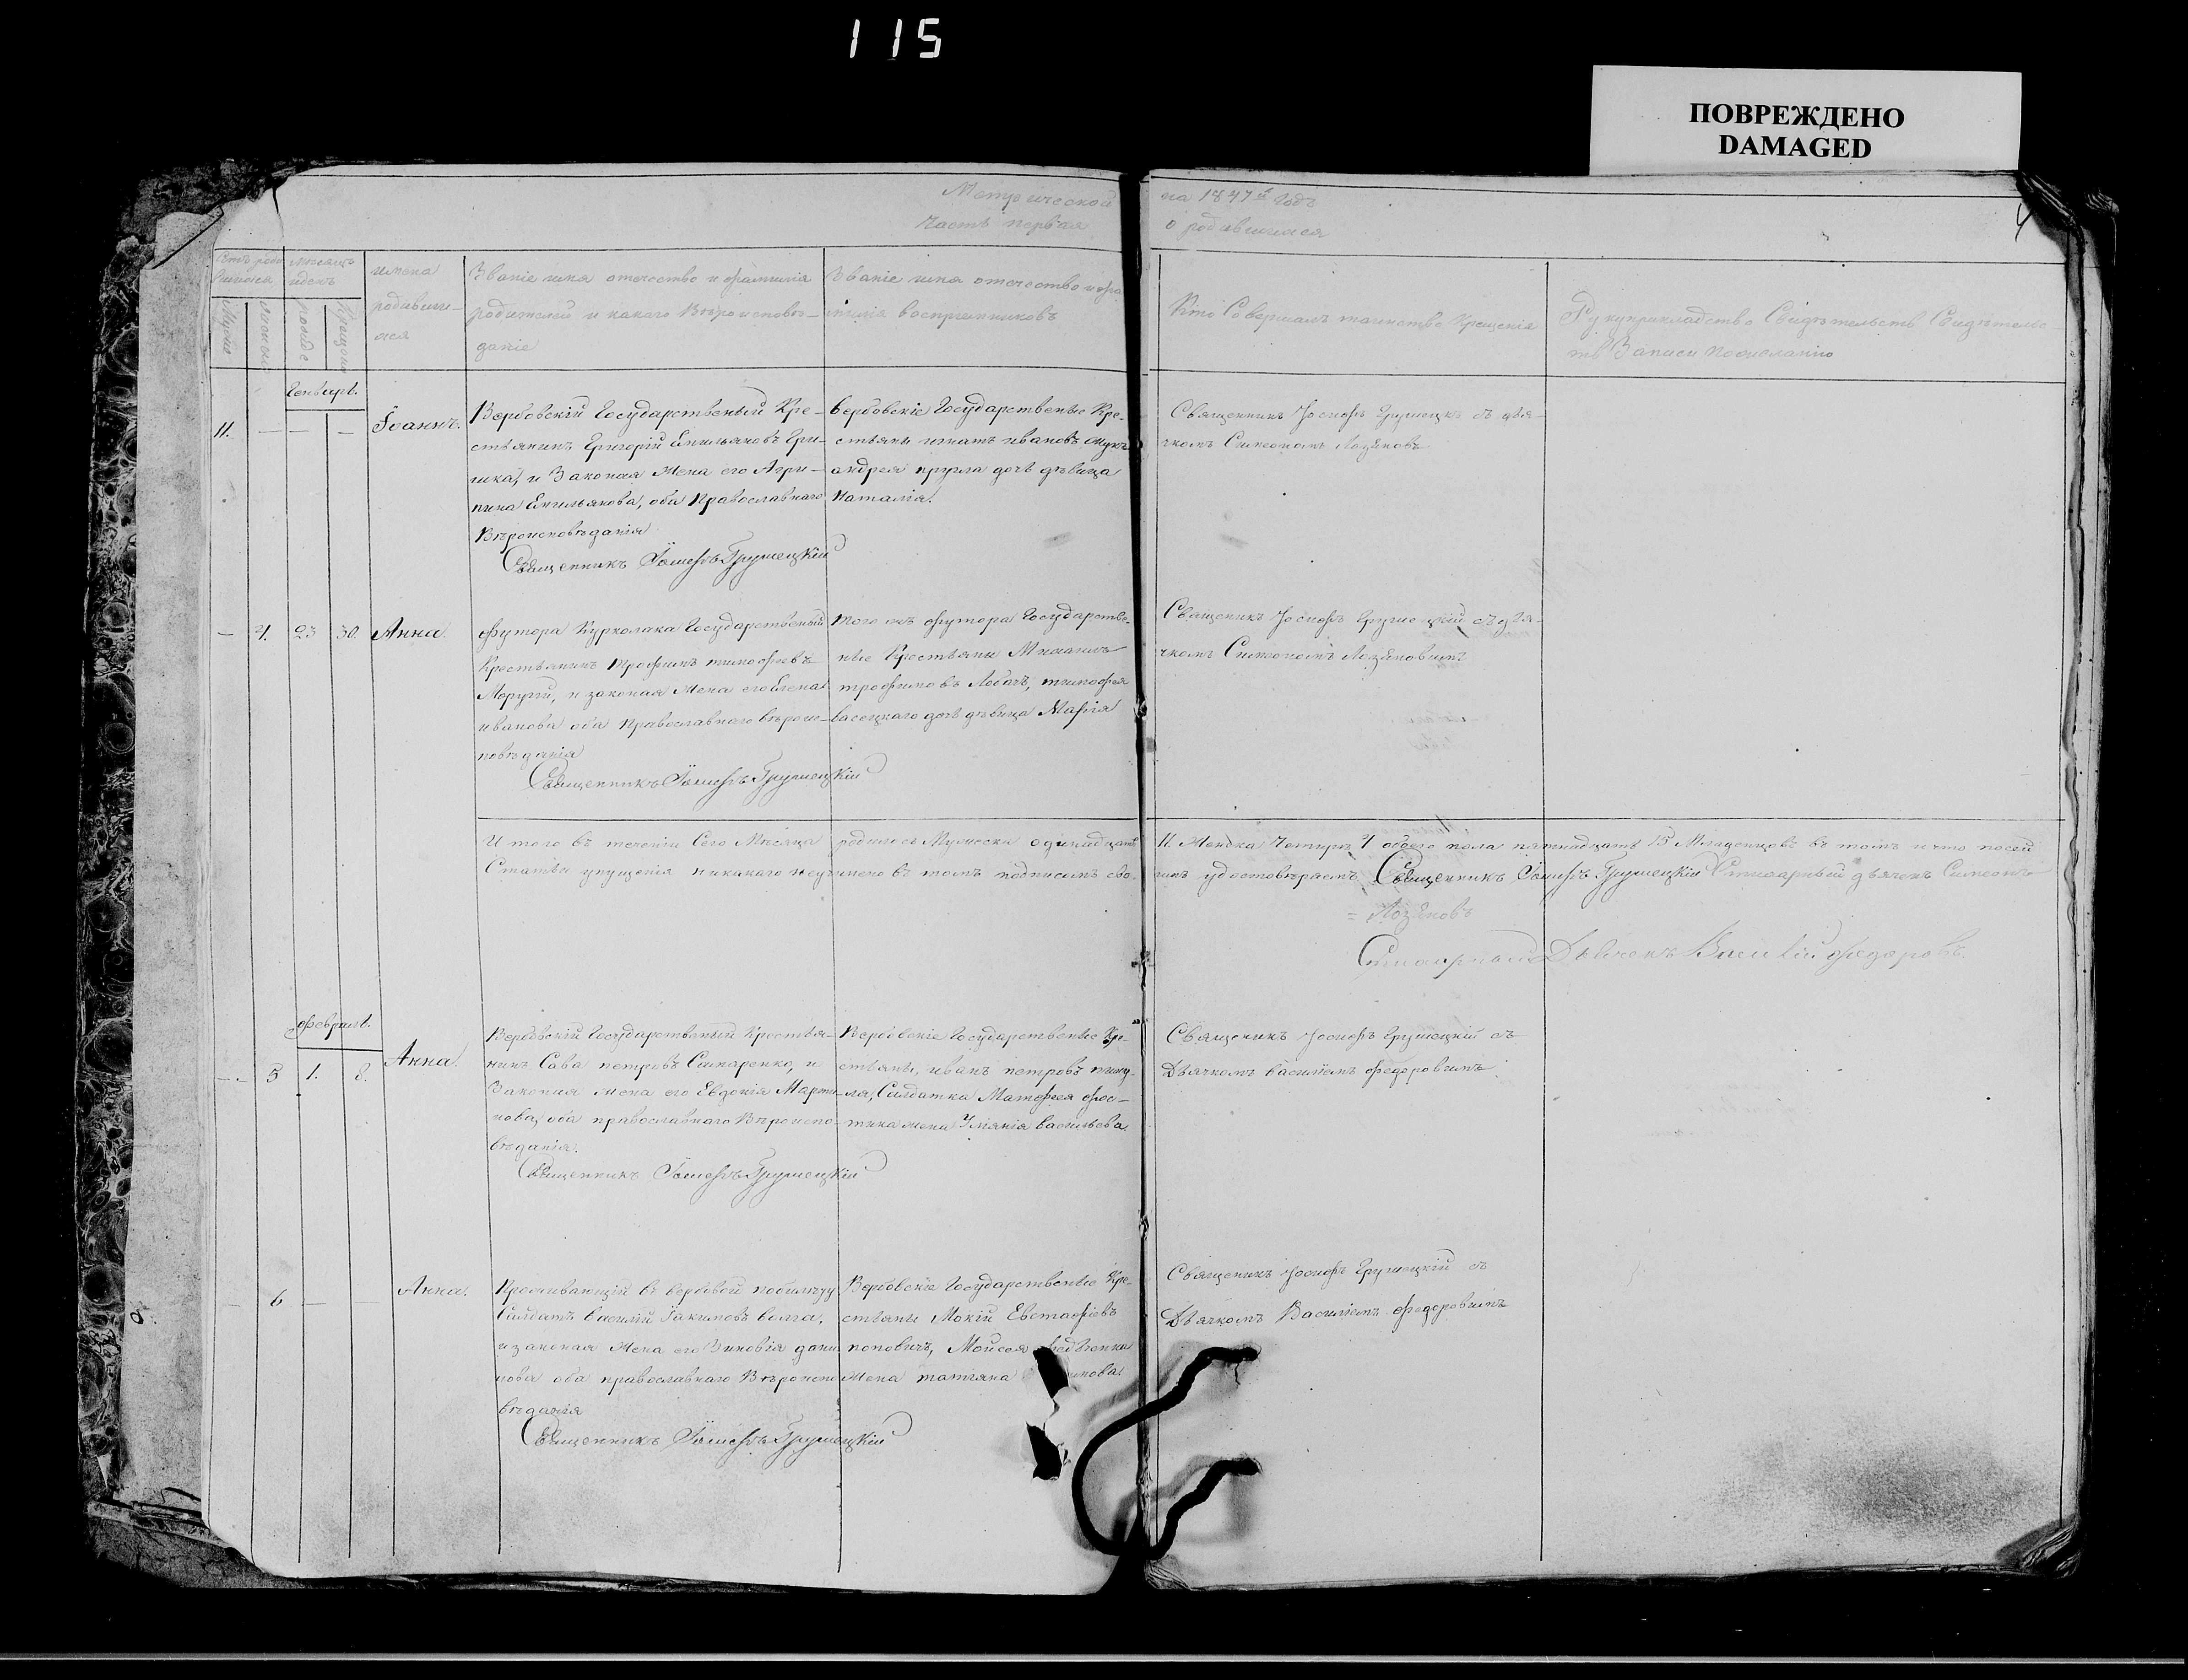 115
ПОВРЕЖДЕНО
DAMAGED
4
Метрической
на 1847й Годъ
Часть первая
о родившихся
Счетъ роди
вшихся
Мѣсяцъ
идень
Мужие
женскъ
рожде
Крещени
имена
родивши-
хся
Званіе имя отечество и фамилія
родителей и какаго Вѣроисповѣ-
данія
Званіе имя отечество и фа
милія воспріемниковъ
Кто Совершалъ таинство крещенія
Рукуприкладство Свидѣтельствъ
Записи пожеланію
Генварь.
11. — — —
Іоаннъ.
Вербовскій Государственый Кре-
стьянинъ Григорій Емильяновъ Гри-
шка, и Законая Жена его Агри-
пина Емильянова, оба Православнаго
Вѣроисповѣданія
Священникъ Іосифъ Грушецкій
Вербовскіе Государственые Кре-
стьяне игнатъ ивановъ
андрея дочь дѣвица
Наталія.
Священникъ Іосифъ Грушецкъ съ дья-
чкомъ Симеономъ Лозѣновъ
— 4. 23 30.
Анна.
футора Курколака Государственый
Крестьянинъ Трофимъ тимофѣевъ
и законая Жена его Елена
иванова оба Православнаго вѣроис-
повѣданія
Священникъ Іосифъ Грушецкій
того жъ футора Государстве-
ные Крестьяне Михаилъ
трофимовъ Лобачъ, тимофея
дочь дѣвица Марія
Священикъ Іосифъ Грушецкій съ дья-
чкомъ Симеономъ Лозѣновимъ
И того въ теченіи Сего Мѣсяца родилось Мужеска одинадцать 11. Женска Четыри 4 обоего пола пятнадцать 15 Младенцовъ въ томъ и что посей
Статьи упущенія никакаго неучинено въ томъ подписомъ сво-
имъ удостовѣраемъ Священникъ Іосифъ Грушецкій Стихарный дьячекъ Симеонъ
= Лозѣновъ
Стихарный Дьячекъ Василій Федоровъ.
февраль.
— 5 1. 8.
Анна.
Вербовскій Государственый Крестья-
нинъ Сава петровъ Самаренко, и
Законая жена его Евдокія Марти-
нова, оба православнаго Вѣроиспо-
вѣданія.
Священникъ Іосифъ Грушецкій
Вербовскіе Государственые Кре-
стьяне, иванъ петровъ
Салдатка Матфея
жена васильева.
Священикъ Іосифъ Грушецкій съ
Дьячкомъ Василіемъ федоровимъ.
— 6 —
Анна.
Проживающій въ вербовой побилету
Салдатъ василій Іакимовъ волга,
и законая Жена его Зиновія дани
лова оба православнаго Вѣроиспо
вѣданія
Священникъ Іосифъ Грушецкій
Вербовскіе Государственые Кре-
стьяне Мокій Евстафіевъ
поповичъ, Мойсея
Жена татіяна
Священикъ Іосифъ Грушецкій съ
Дьячкомъ Василіемъ федоровимъ